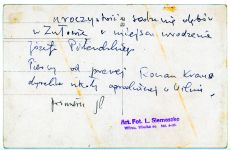 uroczystość sadzenia dębów
w Zułowie w miejscu urodzenia
Józefa Piłsudskiego
Pierwszy od prawej Roman Kraus
dyrektor szkoły ogrodniczej w Wilnie.
Art. Fot. L. Siemaszko